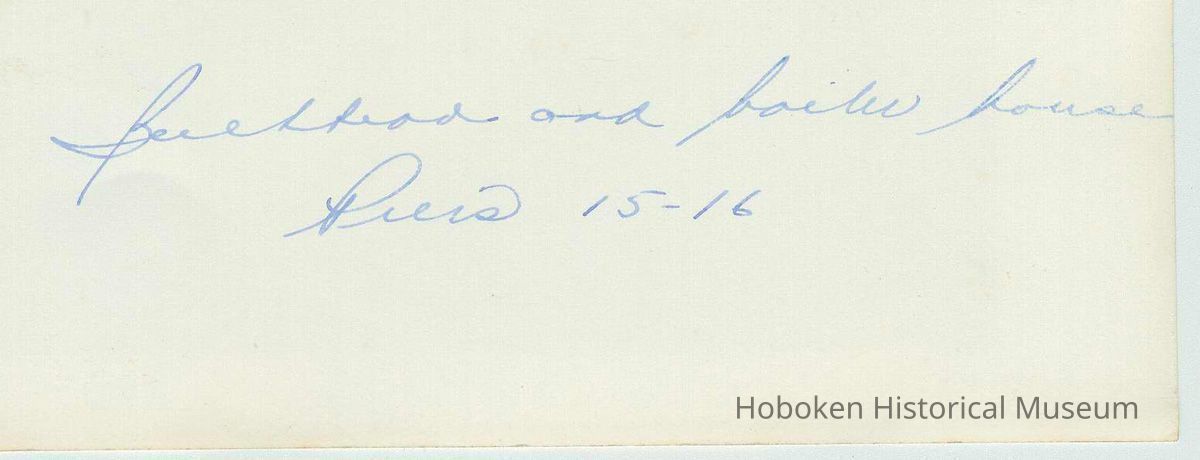 Bulkhead and boiler house
Piers 15-16
Hoboken Historical Museum